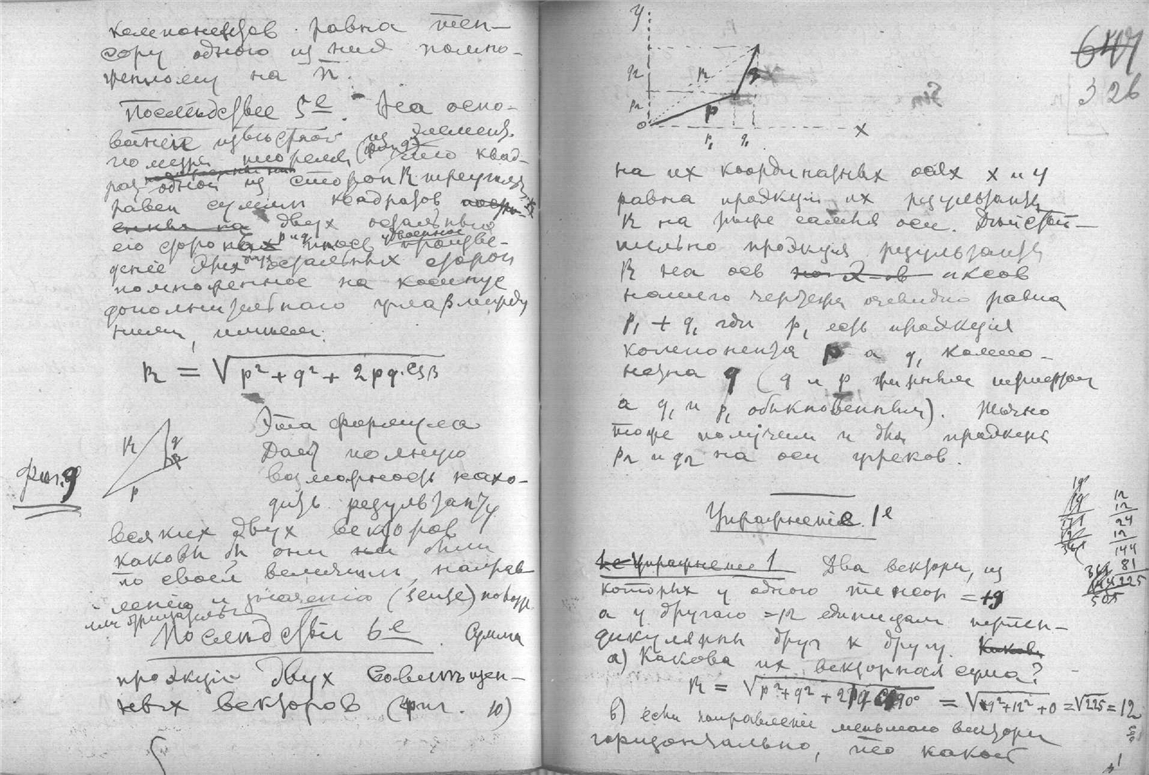 компонентов равна тен-
сору одного из них помно-
женному на n.
Последствие 5е. На осно-
вании известной из Элемен.
геометрии теоремы (фиг. 9) что квад-
рат одной из сторон R треуголь.
равен сумме квадратов
двух остальных
его сторон p и q плюс удвоенное произве-
дение этих двух остальных сторон
помноженное на косинус
дополнительного угла β между
ними, имеем:
R = √p² + q² + 2pq.csβ
R q β
p
Фиг. 9
Эта формула
даетъ полную
возможность нахо-
дить результанту
всяких двух векторов
каковы бы они ни были
по своей величине, направ
лению и значению (sense)
или отрицательн
Последствие 6е. Сумма
проэкций двух совмещен-
ных векторов (фиг. 10)
y
647
326
R q
p
o
x
p₁ q₁
на их координатных осях x и y
равна проэкции их результанты
R на те же самыя оси. Действи-
тельно проэкция результанты
R на ось иксов
нашего чертежа очевидно равна
p₁ + q₁ где p₁ есть проэкция
компонента p а q₁ компо-
нента q (q и p жирным шрифтом
а q₁ и p₁ обыкновенным). Точно
тоже получим и для проэкции
p₂ и q₂ на оси игреков.
Упражнения. 1е
Упражнение 1 Два вектора, из
которых у одного тензор = 9
а у другаго = 12 единицам перпен-
дикулярны друг к другу.
а) Какова их векторная сума?
R = √p² + q² + 2pq cs 90° = √9² + 12² + 0 = √225 =
в) если направление меньшаго вектора
горизонтально, то какой
12
12
24
12
144
81
225